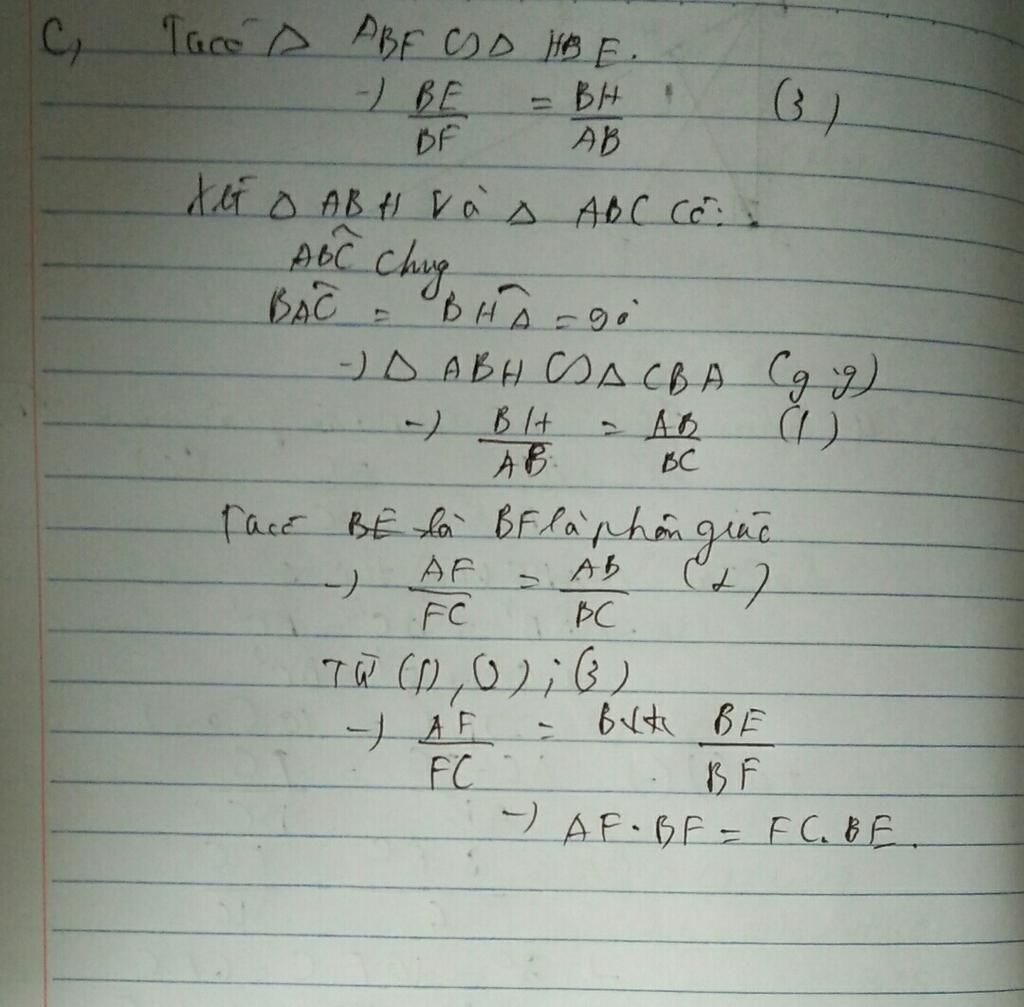 C, Ta có Δ ABF ∽ Δ HBE.
→ BE/BF = BH/AB (3)
Xét Δ ABH và Δ ABC có:
ABC^ chung
BAC^ = BHA^ = 90
→ Δ ABH ∽ Δ CBA (g.g)
→ BH/AB = AB/BC (1)
Ta có BF là phân giác
→ AF/FC = AB/BC (2)
Từ (1), (2); (3)
→ AF/FC = BE/BF
→ AF. BF = FC. BE.